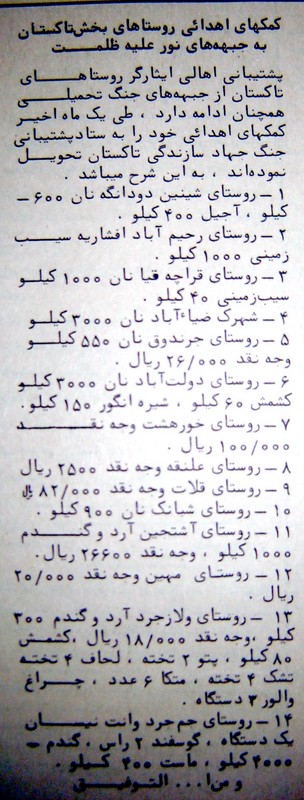 کمکهای اهدائی روستاهای بخش تاکستان
به جبهه‌های نور علیه ظلمت
پشتیبانی اهالی ایثارگر روستاهای
تاکستان از جبهه‌های جنگ تحمیلی
همچنان ادامه دارد ، طی یک ماه اخیر
کمکهای اهدائی خود را به ستاد پشتیبانی
جنگ جهاد سازندگی تاکستان تحویل
نموده‌اند ، به این شرح میباشد .
۱ – روستای شینین دودانگه نان ۶۰۰ –
کیلو ، آجیل ۴۰۰ کیلو .
۲ – روستای رحیم آباد افشاریه سیب
زمینی ۱۰۰۰ کیلو .
۳ – روستای قراچه قیا نان ۱۰۰۰ کیلو
سیب‌زمینی ۴۰ کیلو .
۴ – شهرک ضیاءآباد نان ۳۰۰۰ کیلو
۵ – روستای جرندوق نان ۵۵۰ کیلو
وجه نقد ۲۶/۰۰۰ ریال .
۶ – روستای دولت‌آباد نان ۳۰۰۰ کیلو
کشمش ۶۰ کیلو ، شیره انگور ۱۵۰ کیلو.
۷ – روستای خورهشت وجه نقد
۱۰۰/۰۰۰ ریال .
۸ – روستای علنقه وجه نقد ۲۵۰۰ ریال
۹ – روستای قلات وجه نقد ۸۲/۰۰۰ ریال
۱۰ – روستای شبانک نان ۹۰۰ کیلو .
۱۱ – روستای آشتجین آرد و گندم
۱۰۰۰ کیلو ، وجه نقد ۲۶۶۰۰ ریال.
۱۲ – روستای مهین وجه نقد ۲۰/۰۰۰
ریال .
۱۳ – روستای ولازجرد آرد و گندم ۳۰۰
کیلو ،وجه نقد ۱۸/۰۰۰ ریال ،کشمش
۸۰ کیلو ، پتو ۲ تخته ، لحاف ۴ تخته
تشک ۴ تخته ، متکا ۶ عدد ، چراغ
والور ۳ دستگاه .
۱۴ – روستای جم‌جرد وانت نیسان
یک دستگاه ، گوسفند ۲ راس ، گندم –
۴۰۰۰ کیلو ، ماست ۴۰۰ کیلو .
و من‌ا... التوفیق